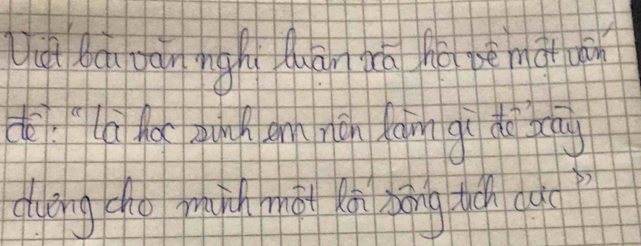 Viết bài văn nghị luận xã hội về một vấn
đề: "Là học sinh em nên làm gì để xây
dựng cho mình một lối sống tích cực"